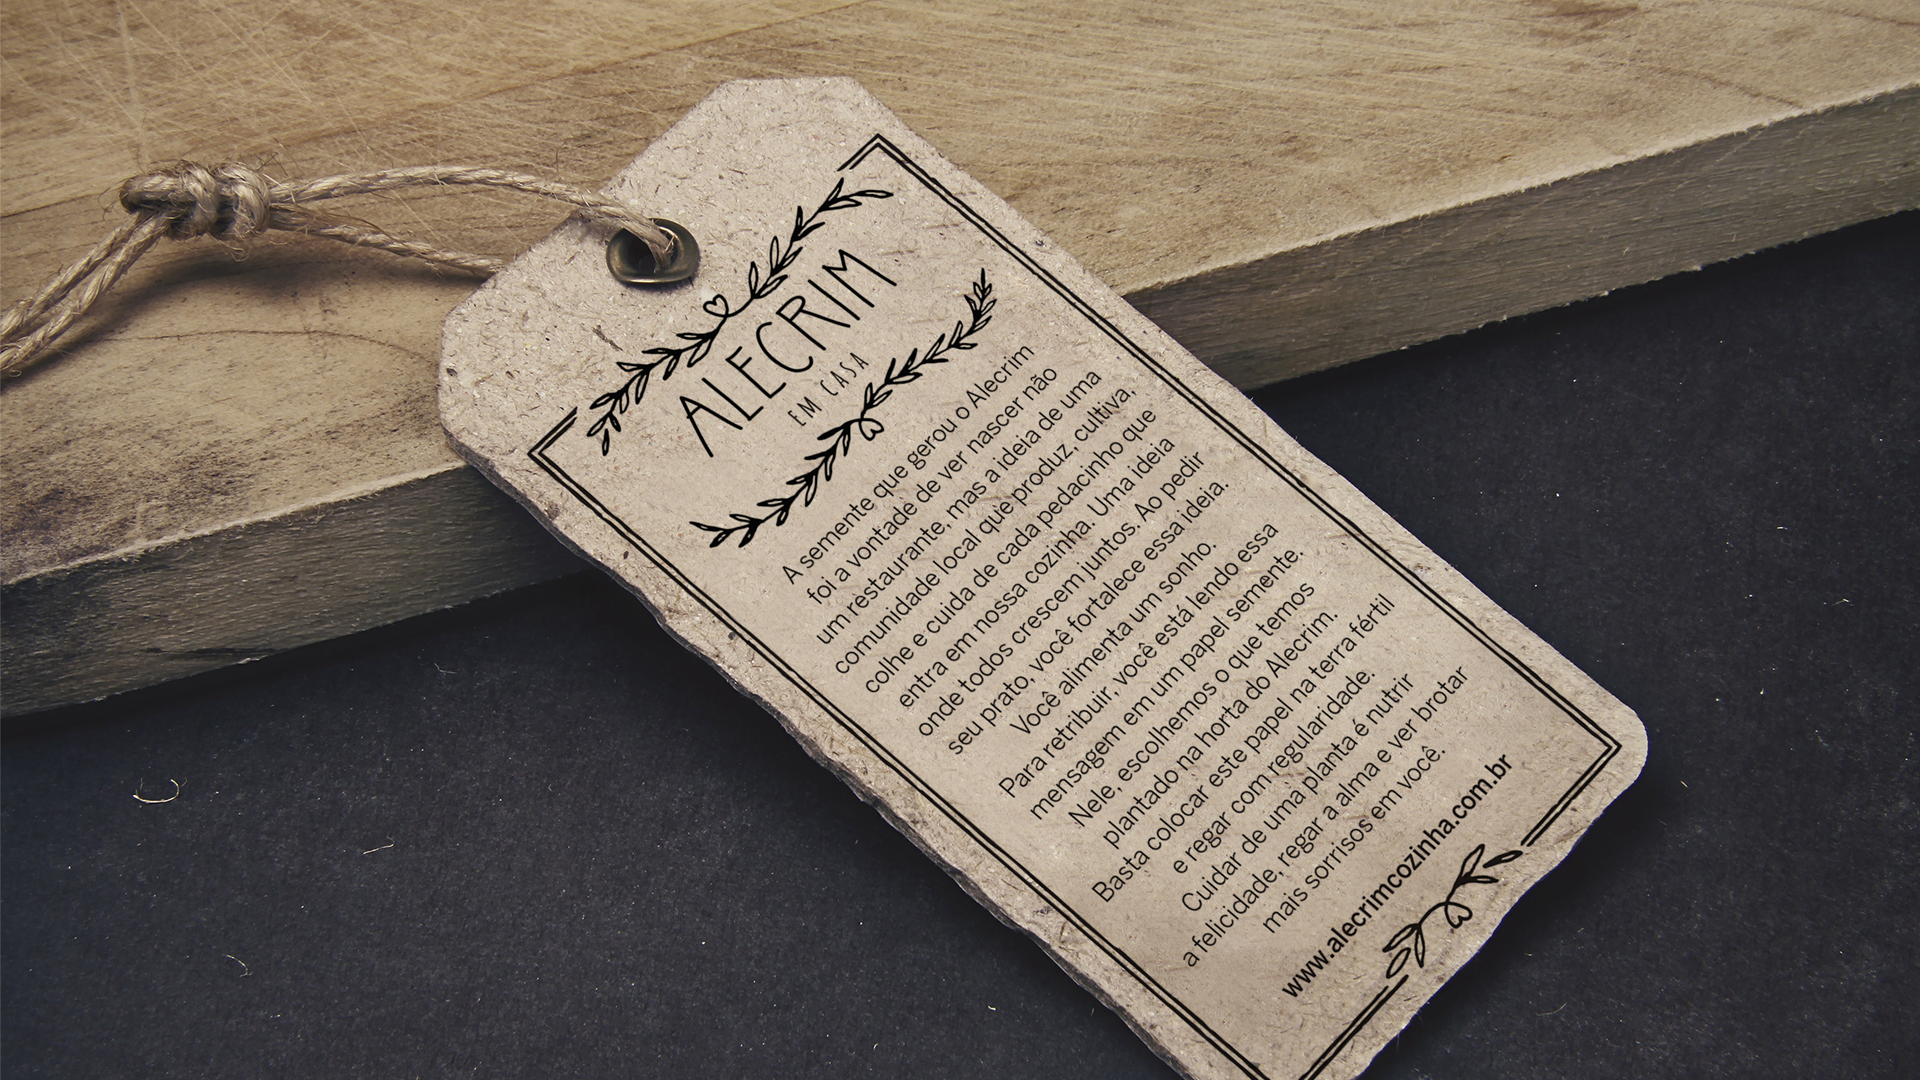 ALECRIM
EM CASA
A semente que gerou o Alecrim
foi a vontade de ver nascer não
um restaurante, mas a ideia de uma
comunidade local que produz, cultiva,
colhe e cuida de cada pedacinho que
entra em nossa cozinha. Uma ideia
onde todos crescem juntos. Ao pedir
seu prato, você fortalece essa ideia.
Você alimenta um sonho.
Para retribuir, você está lendo essa
mensagem em um papel semente.
Nele, escolhemos o que temos
plantado na horta do Alecrim.
Basta colocar este papel na terra fértil
e regar com regularidade.
Cuidar de uma planta é nutrir
a felicidade, regar a alma e ver brotar
mais sorrisos em você.
www.alecrimcozinha.com.br